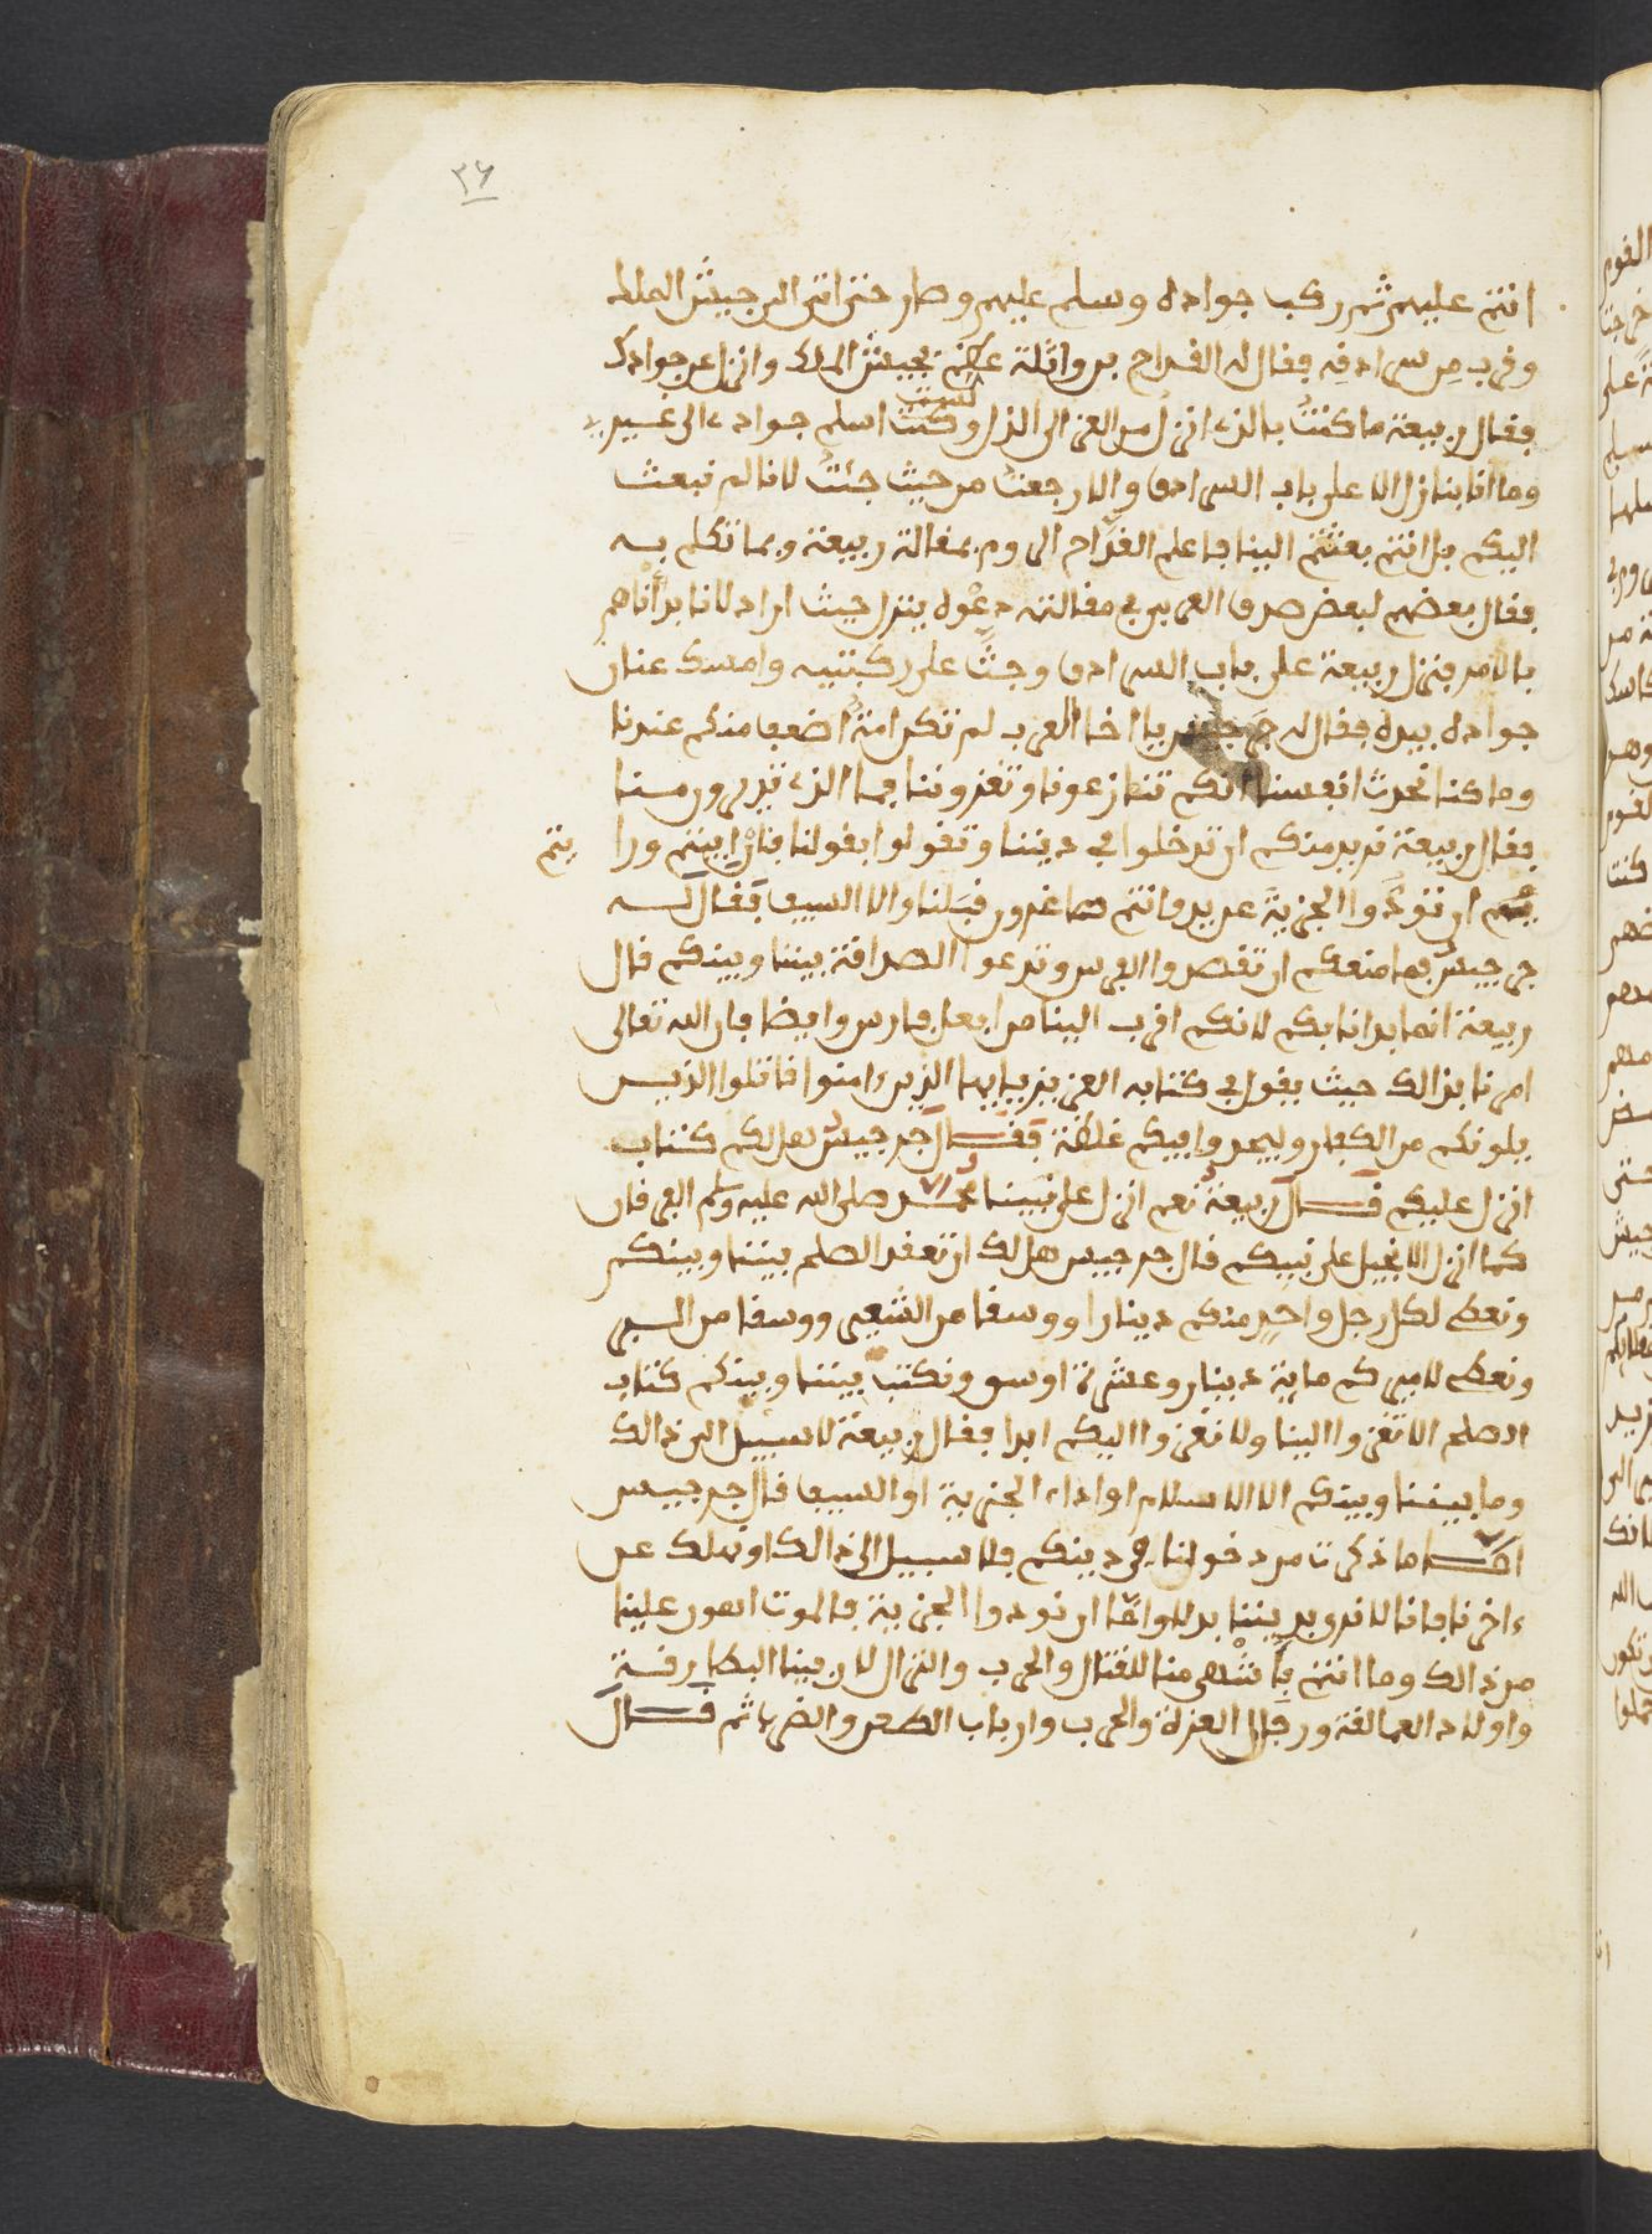 ٣٦
انتم عليهم ثم ركب جواده وسلم عليهم وصار حتى اتى الى جيش الملك
وقرب من سرادقه فقال له القداح بن واثلة عظم جيش الملك وانزل عن جوادك
فقال ربيعة ما كنت بالذي انزل من العز الى الذل و لست اسلم جوادي الى غيري
وما انا بنازل الا على باب السرادق والا رجعت من حيث جئت لانا لم نبعث
اليكم بل انتم بعثتم الينا فاعلم القداح الروم بمقالة ربيعة وبما تكلم به
فقال بعضهم لبعض صدق العربي في مقالته دعوه ينزل حيث اراد لانا بدأناهم
بالامر فنزل ربيعة على باب السرادق وجثا على ركبتيه وامسك عنان
جواده بيده فقال له جرجيس يا اخا العرب لم تكن امة اضعف منكم عندنا
وما كنا نحدث انفسنا انكم تنازعونا وتغزوننا فما الذي تريدون منا
فقال ربيعة نريد منكم ان تدخلوا في ديننا وتقولوا بقولنا فان ابيتم ورا يتم
ان تؤدوا الجزية عن يد وانتم صاغرون قبلنا والا السيف فقال له
جرجيس فما منعكم ان تقصدوا الفرس وتدعوا الصداقة بيننا وبينكم قال
ربيعة انما بدانا بكم لانكم اقرب الينا من افعل فارس وايضا فان الله تعالى
امرنا بذالك حيث يقول في كتابه العزيز يايها الذين ءامنوا قاتلوا الذين
يلونكم من الكفار وليجدوا فيكم غلظة فقال جرجيس هل لكم كتاب
انزل عليكم قال ربيعة نعم انزل على نبينا محمد صلى الله عليه وسلم الفرقان
كما انزل الانجيل على نبيكم قال جرجيس هل لك ان تعقد الصلح بيننا وبينكم
ونعطي لكل رجل واحد منكم دينارا ووسقا من الشعير ووسقا من البر
ونعطي لاميركم ماية دينار وعشرة اوسق ونكتب بيننا وبينكم كتاب
الصلح الا تغزوا الينا ولا نغزوا اليكم ابدا فقال ربيعة لا سبيل الى ذالك
وما بيننا وبينكم الا الاسلام او اداء الجزية او السيف قال جرجيس
اما ما ذكرت من دخولنا في دينكم فلا سبيل الى ذالك او نهلك عن
ءاخرنا فانا لا نرو بديننا بدلا واما ان نودوا الجزية فالموت اهون علينا
من ذالك وما انتم باشهى منا للقتال والحرب والنزال لان فينا البطارقة
واولاد العمالقة ورجال العزلة والحرب وارباب الطعن والضراب ثم قال